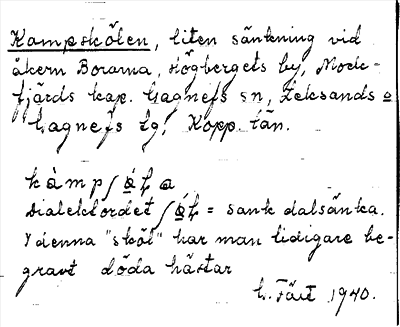 Kampskölen, liten sänkning vid
åkern Borarna, Högbergets by, Mock-
fjärds kap. Gagnefs sn, Leksands o
Gagnefs tg, Kopp. län.
kàmp
Dialektordet = sank dalsänka.
I denna "sköl" har man tidigare be-
gravt döda hästar
1940.